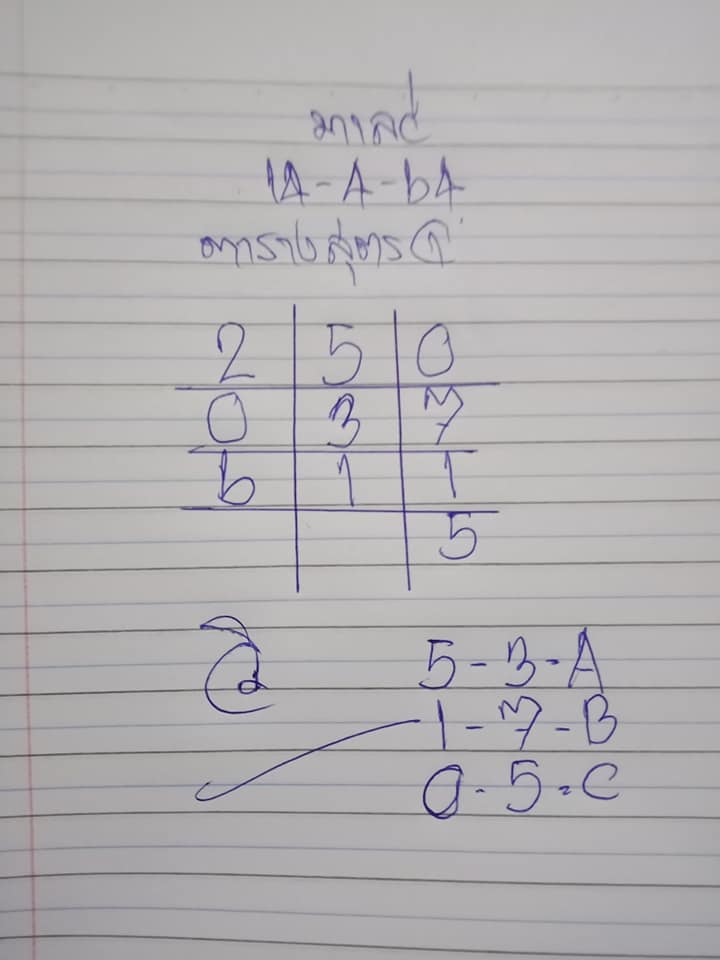 มาเลย์
1A-A-6A
ตารางสูตร ①
2 5 0
0 3 7
6 1 1
5
5-3-A
1-7-B
0-5=C